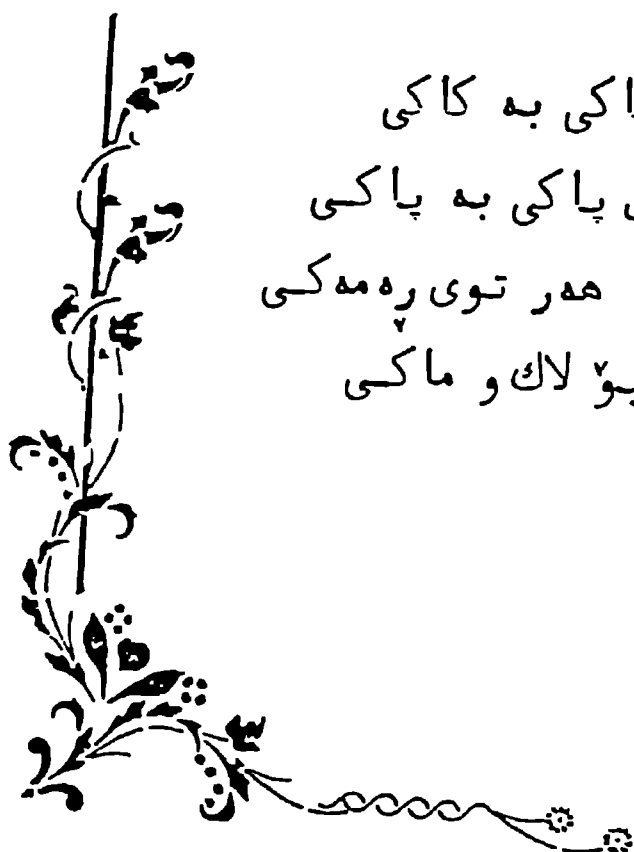 بە کاکی
پاکی بە پاکی
هەر توی ڕەمەکی
لاك و ماکی